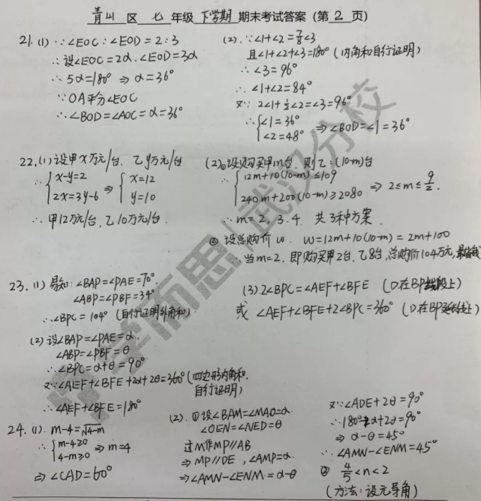 青山 区 七 年级 下学期 期末考试答案（第 2 页）
21.(1) ∵∠EOC:∠EOD=2:3
∴设∠EOC=2α.∠EOD=3α
∴5α=180° ⇒ α=36°
∵OA平分∠EOC
∴∠BOD=∠AOC=α=36°
(2).∵∠1+∠2=7/8∠3
且∠1+∠2+∠3=180°（内角和自行证明）
∴∠3=96°
∴∠1+∠2=84°
又∵ 2∠1+1/2∠2=∠3=96°
∴{∠1=36° ∠2=48° ⇒∠BOD=∠1=36°
22.(1)设甲x万元/台.乙y万元/台
∴{x-y=2 2x=3y-6 ⇒{x=12 y=10
∴甲12万元/台.乙10万元/台.
(2)①设购买甲m台.则乙(10-m)台
∴{12m+10(10-m)≤109 240m+200(10-m)≥2080 ⇒ 2≤m≤9/2.
∴m=2.3.4. 共3种方案.
② 设总购价w. w=12m+10(10-m)=2m+100
∴当m=2.即购买甲2台.乙8台.总购价104万元.
23.(1) ∠BAP=∠PAE=70°
∠ABP=∠PBF=34°
∴∠BPC=104°（自行证明外角和）
(2) 设∠BAP=∠PAE=α.
∠ABP=∠PBF=θ
∴∠BPC=α+θ=90°
又∵∠AEF+∠BFE+2α+2θ=360°（四边形内角和.
自行证明）
∴∠AEF+∠BFE=180°
(3) 2∠BPC=∠AEF+∠BFE (D在BP上)
或 ∠AEF+∠BFE+2∠BPC=360° (D在BP延长线上)
24.(1). m-4=√4-m
∴{m-4≥0 4-m≥0 ⇒m=4
⇒∠CAD=60°
(2).①设∠BAM=∠MAD=α.
∠OEN=∠NED=θ
过M作MP//AB
⇒MP//DE,∠AMP=α.
⇒∠AMN-∠ENM=α-θ
又∵∠ADE+2θ=90°
∴180°-2α+2θ=90°
⇒α-θ=45°
∴∠AMN-∠ENM=45°
② 4/5<n<2
(方法:设元导角)
学而思武汉分校